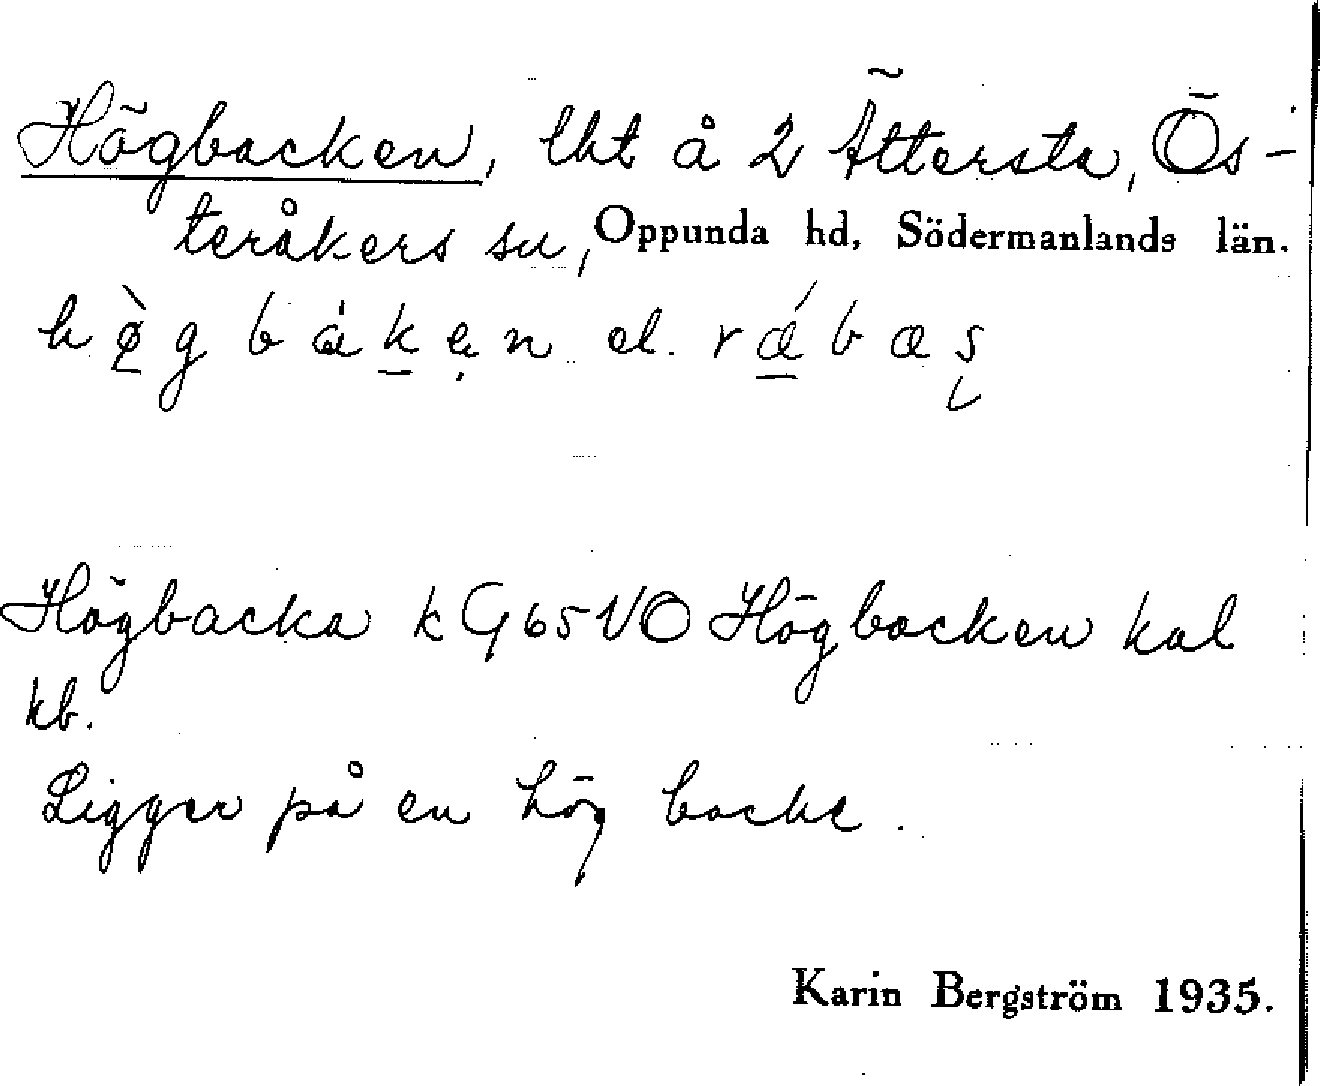 Högbacken, lht å 2 Ättersta, Ös-
teråkers sn, Oppunda hd, Södermanlands län.
hø̀gbàkən el. rǽbas
Högbacka k G65VO Högbacken kal
kb.
Ligger på en hög backe.
Karin Bergström 1935.